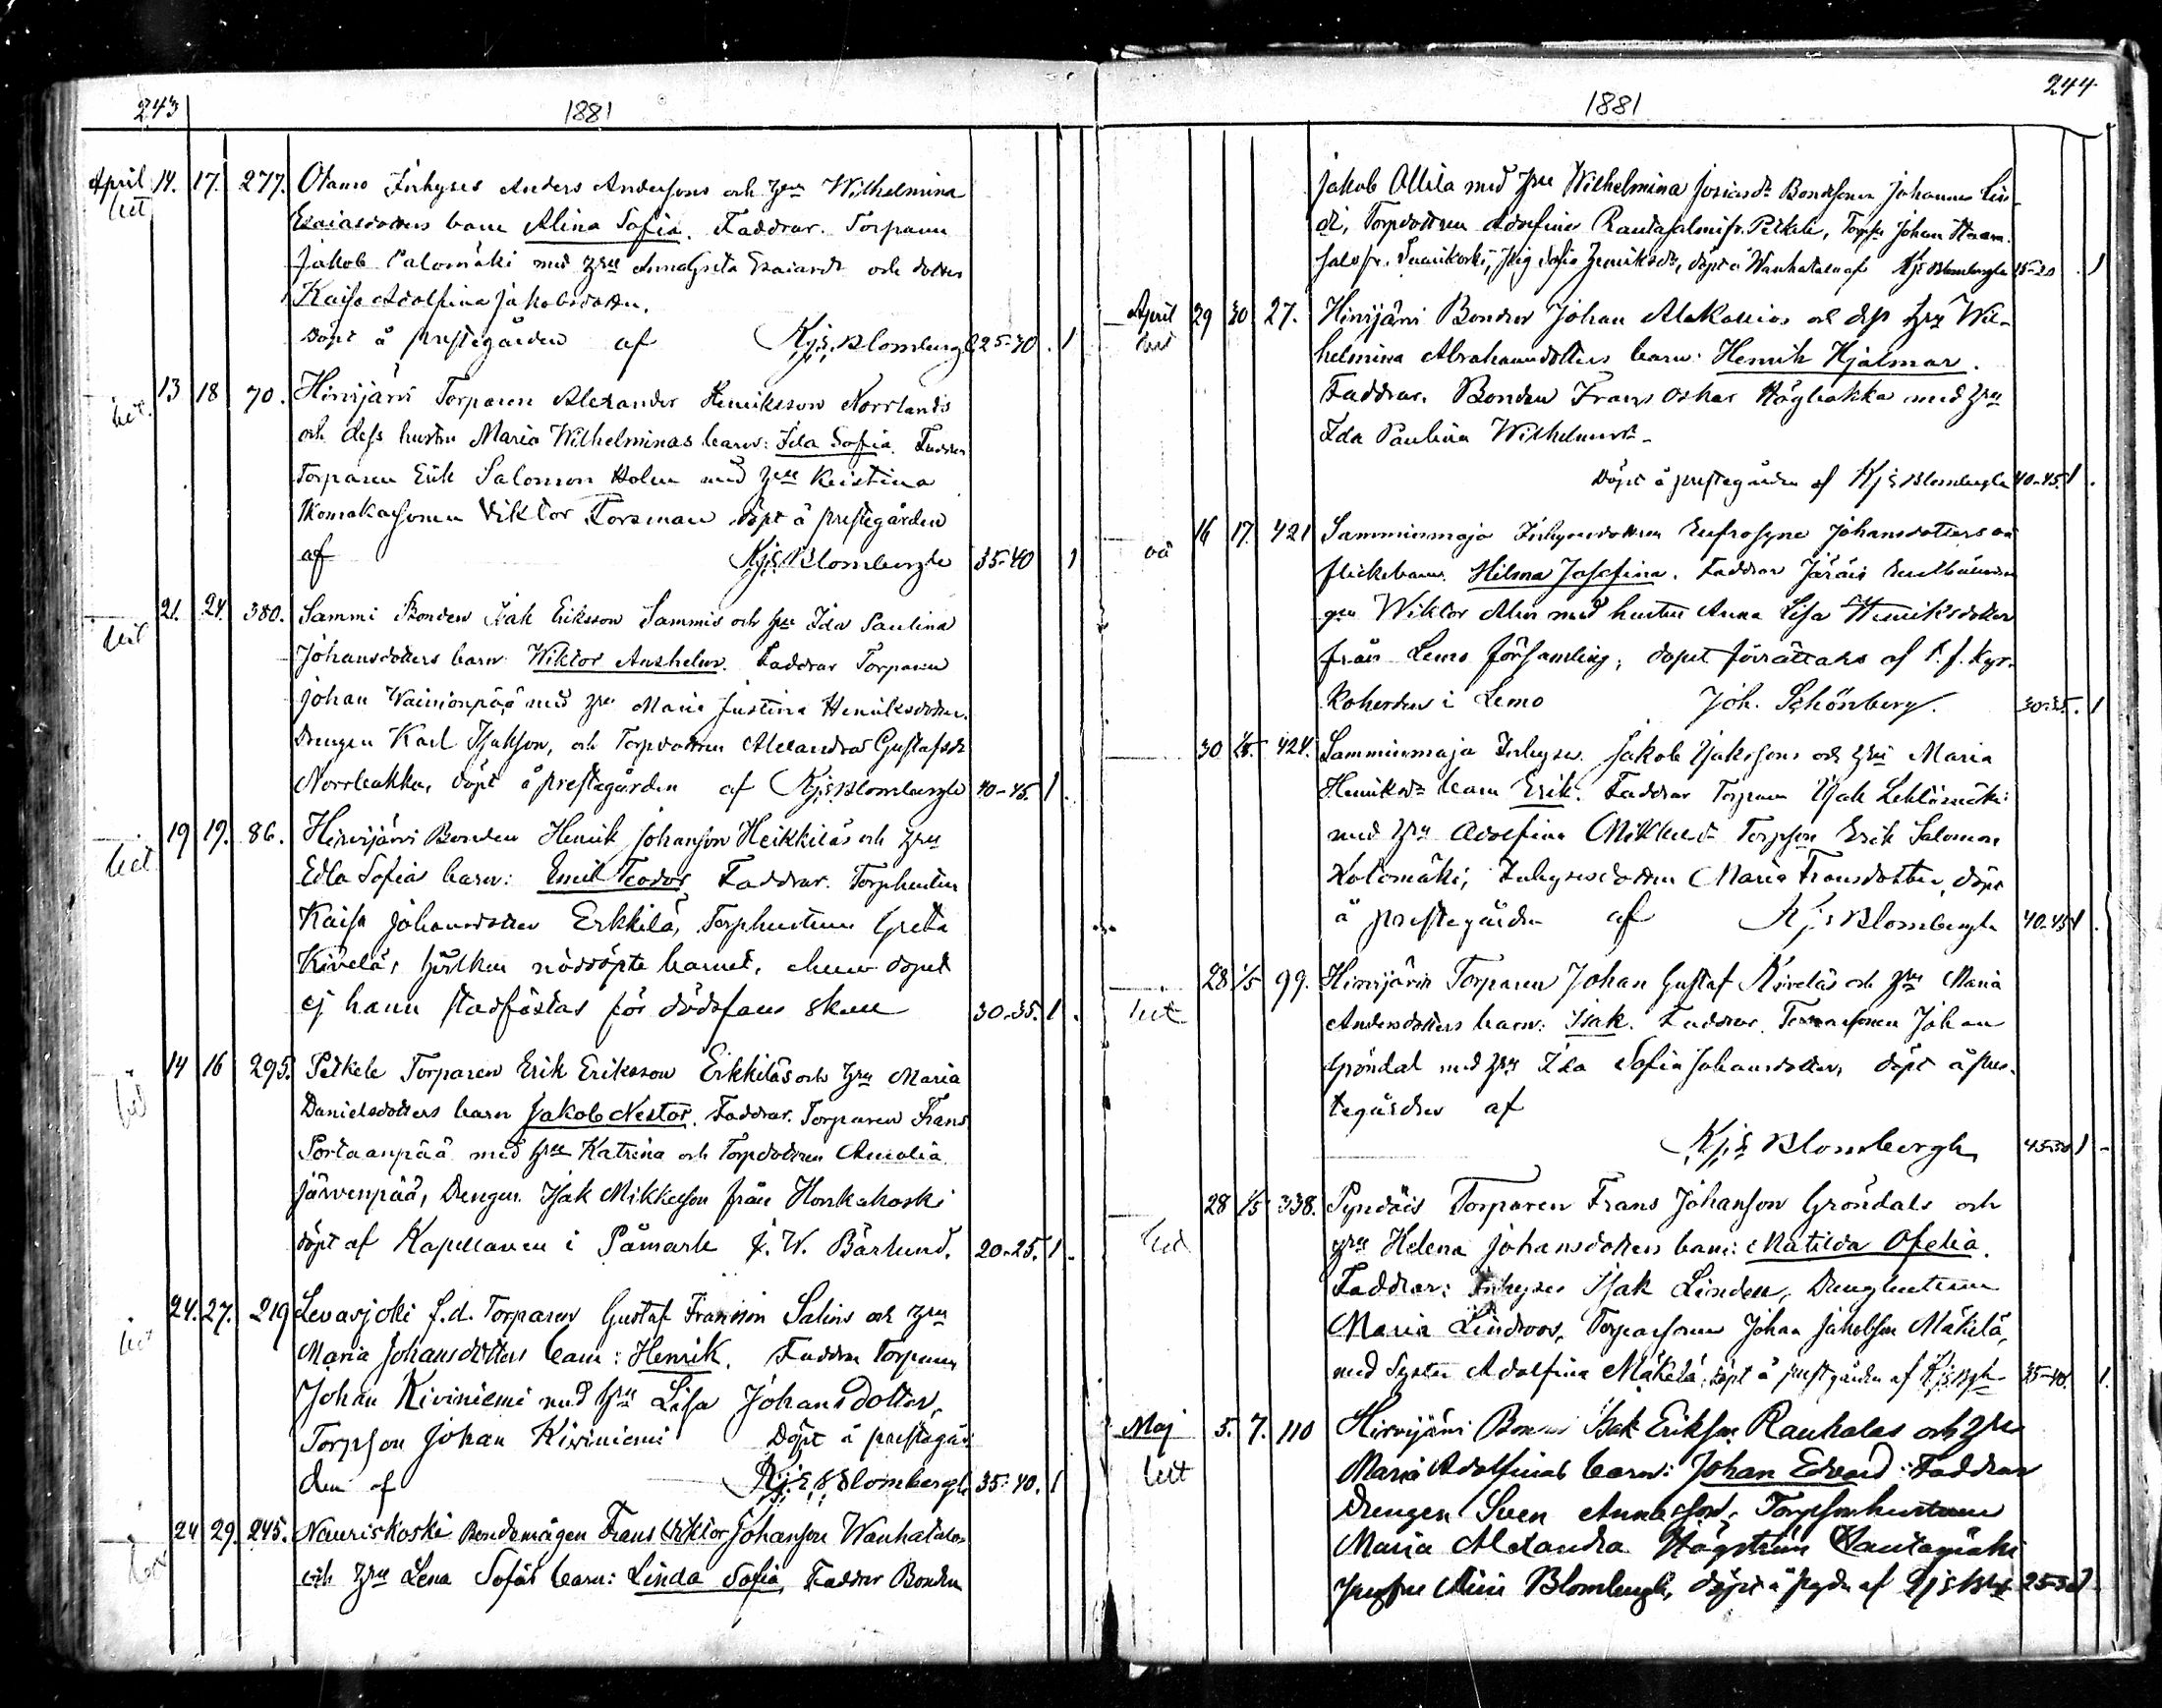 243
1881
April 14. 17. 277. Otamo Inhyses Anders Andersons och hru Wilhelmina
Esaiasdotters barn Alina Sofia. Faddrar. Torparen
Jakob Palomäki med hru Anna Greta Esaiasdr och dotter
Kaisa Adolfina Jakobsdotter.
döpt å prestegården af Kjs. Blombergh 25-30. 1
13 18 70. Hirvijärvi Torparen Alexander Henriksson Norrlands
och dess hustru Maria Wilhelminas barn: Ida Sofia. Faddrar
Torparen Erik Salomon Holm med hru Kristina
Skomakarsonen Viktor Forsman döpt å prestegården
af Kjs Blombergh 35-40 1
21. 24. 380. Sammi Bonden Isak Eriksson Sammis och hru Ida Paulina
Johansdotters barn Wiktor Anshelm. Faddrar Torparen
Johan Wainionpää med hru Maria Justina Henriksdotter.
Drengen Karl Isakson, och Torpdottren Alexandra Gustafsdr
Norrbakka, döpt å prestegården af Kjs Blombergh 40-45. 1
19 19. 86. Hirvijärvi Bonden Henrik Johanson Heikkiläs och hru
Edla Sofias barn: Emil Teodor Faddrar. Torphustrun
Kaisa Johansdotter Erkkilä, Torphustrun Greta
Kivelä, hvilken nöddöpte barnet, dopet
ej hann stadfästas för dödsfans skull 30-35. 1.
14 16 295. Petkele Torparen Erik Eriksson Erkkiläs och hru Maria
Danielsdotters barn Jakob Nestor. Faddrar. Torparen Frans
Portaanpää med hru Katrina och Torpdottren Amalia
Järvenpää, Drengen Isak Mikkelson från Honkakoski
döpt af Kapellanen i Påmark F. W. Bärlund. 20-25. 1.
24. 27. 219 Levasjoki f.d. Torparen Gustaf Fransson Salins och hru
Maria Johansdotters barn: Henrik. Faddrar Torparen
Johan Kiviniemi med hru Lisa Johansdotter,
Torpson Johan Kiviniemi Döpt å prestegår
den af Kjs Blombergh 35-40. 1
24 29. 245. Nauriskoski Bondemågen Frans Viktor Johanson Wanhatalos
och hru Lena Sofias barn: Linda Sofia, Faddrar Bonden
244
1881
Jakob Ollila med hru Wilhelmina Josiasdr Bondsonen Johannes
Torpdottren Adolfina Rantasalmi fr. Petkele, Johan
salo fr. Pig Sofia Henriksdr, döpt å Wanhatalo af Kjs Blombergh 15-20 . 1
April 29 30 27. Hirvijärvi Bonden Johan Alakallios och dess hru Wil-
helmina Abrahamsdotters barn: Henrik Hjalmar.
Faddrar. Bonden Frans Oskar Högbakka med hru
Ida Paulina Wilhelmsdr.
Döpt å prestegården af Kjs Blombergh 40-45. 1.
oä 16 17. 421 Samminmaja Inhysesdottren Eufrosyne Johansdotters oä
flickebarn. Hilma Josefina. Faddrar
Wiktor Alm med hustru Anna Lisa Henriksdotter
från Lemo församling; dopet förrättats af t. f. kyr-
koherden i Lemo Joh. Schönberg. 30-35. 1
30 1/5 424. Samminmaja Inhyses Jakob Isakssons och hru Maria
Henriksdr barn Erik. Faddrar Torparen Isak Lehtismäki
med hru Adolfina Mikkelsdr Torpson Erik Salomon
Kolomäki, Inhysesdottren Maria Fransdotter, döpt
å prestegården af Kjs Blombergh 40-45 1
28 1/5 99. Hirvijärvi Torparen Johan Gustaf Kiveläs och hru Maria
Andersdotters barn: Isak. Faddrar. Torparsonen Johan
Gröndal med hru Ida Sofia Johansdotter, döpt å pres-
tegården af
Kjs Blombergh 45-50 1 -
28 1/5 338. Torparen Frans Johanson Gröndals och
hru Helena Johansdotters barn: Matilda Ofelia.
Faddrar: Inhyses Isak Linden, Drenghustrun
Maria Lindroos, Torparsonen Johan Jakobson Mäkelä,
med Syster Adolfina Mäkelä, döpt å prestgården af Kjs Bgh 35-40. 1.
Maj 5. 7. 110 Hirvijärvi Bonden Isak Erikson Rauhalas och hru
Maria Adolfinas barn: Johan Edvard: Faddrar
Drengen Sven Torpsonhustrun
Maria Alexandra Högström Rautamäki
Jungfru Mini Blombergh, döpt å pgdn af Kjs 25-30 1.